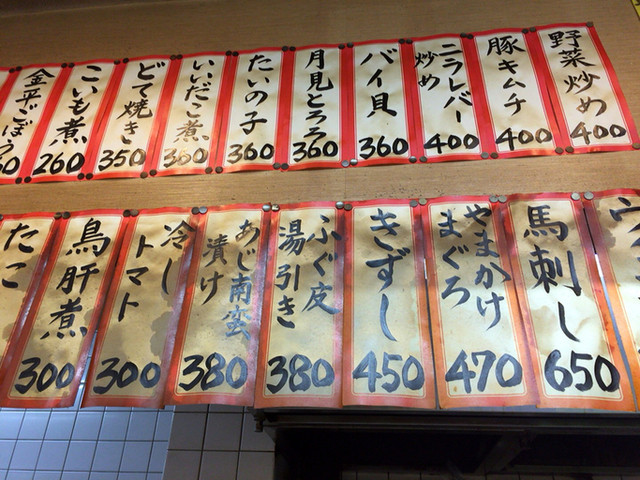 野菜炒め
400
豚キムチ
400
ニラレバー
炒め
400
バイ貝
360
月見とろろ
360
たいの子
360
いいだこ煮
360
どて焼き
350
こいも煮
260
金平ごぼう
60
馬刺し
650
やまかけ
まぐろ
470
きずし
450
ふぐ皮
湯引き
380
あじ南蛮
漬け
380
冷し
トマト
300
鳥肝煮
300
たこ